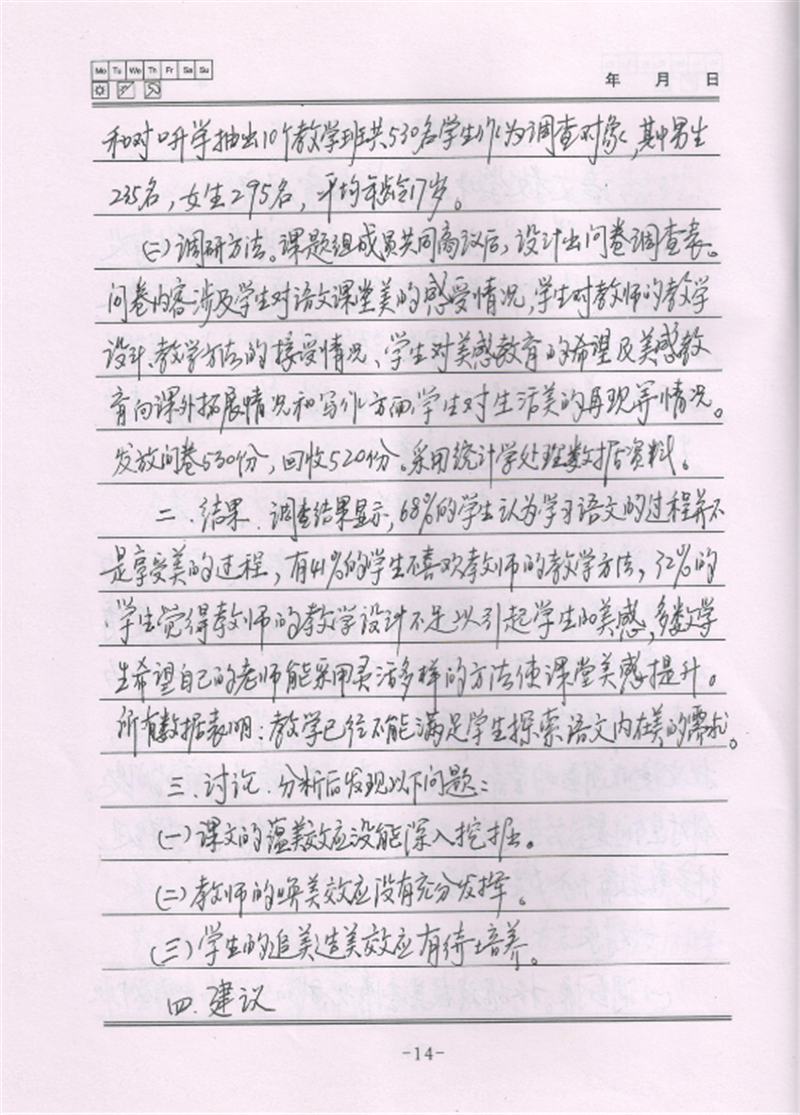 Mo Tu We Th Fr Sa Su
年 月 日
和对口升学抽出10个教学班共530名学生作为调查对象，其中男生
235名，女生295名，平均年龄17岁。
(二)调研方法。课题组成员共同商议后，设计出问卷调查表。
问卷内容涉及学生对语文课堂美的感受情况，学生对教师的教学
设计、教学方法的接受情况、学生对美感教育的希望及美感教
育向课外拓展情况和写作方面学生对生活美的再现等情况。
发放问卷530份，回收520份。采用统计学处理数据资料。
二.结果.调查结果显示，68%的学生认为学习语文的过程并不
是享受美的过程，有41%的学生不喜欢教师的教学方法，32%的
学生觉得教师的教学设计不足以引起学生的美感，多数学
生希望自己的老师能采用灵活多样的方法使课堂美感提升。
所有数据表明：教学已经不能满足学生探索语文内在美的需求。
三.讨论.分析后发现以下问题：
(一)课文的蕴美效应没能深入挖掘。
(二)教师的唤美效应没有充分发挥。
(三)学生的追美造美效应有待培养。
四.建议
-14-